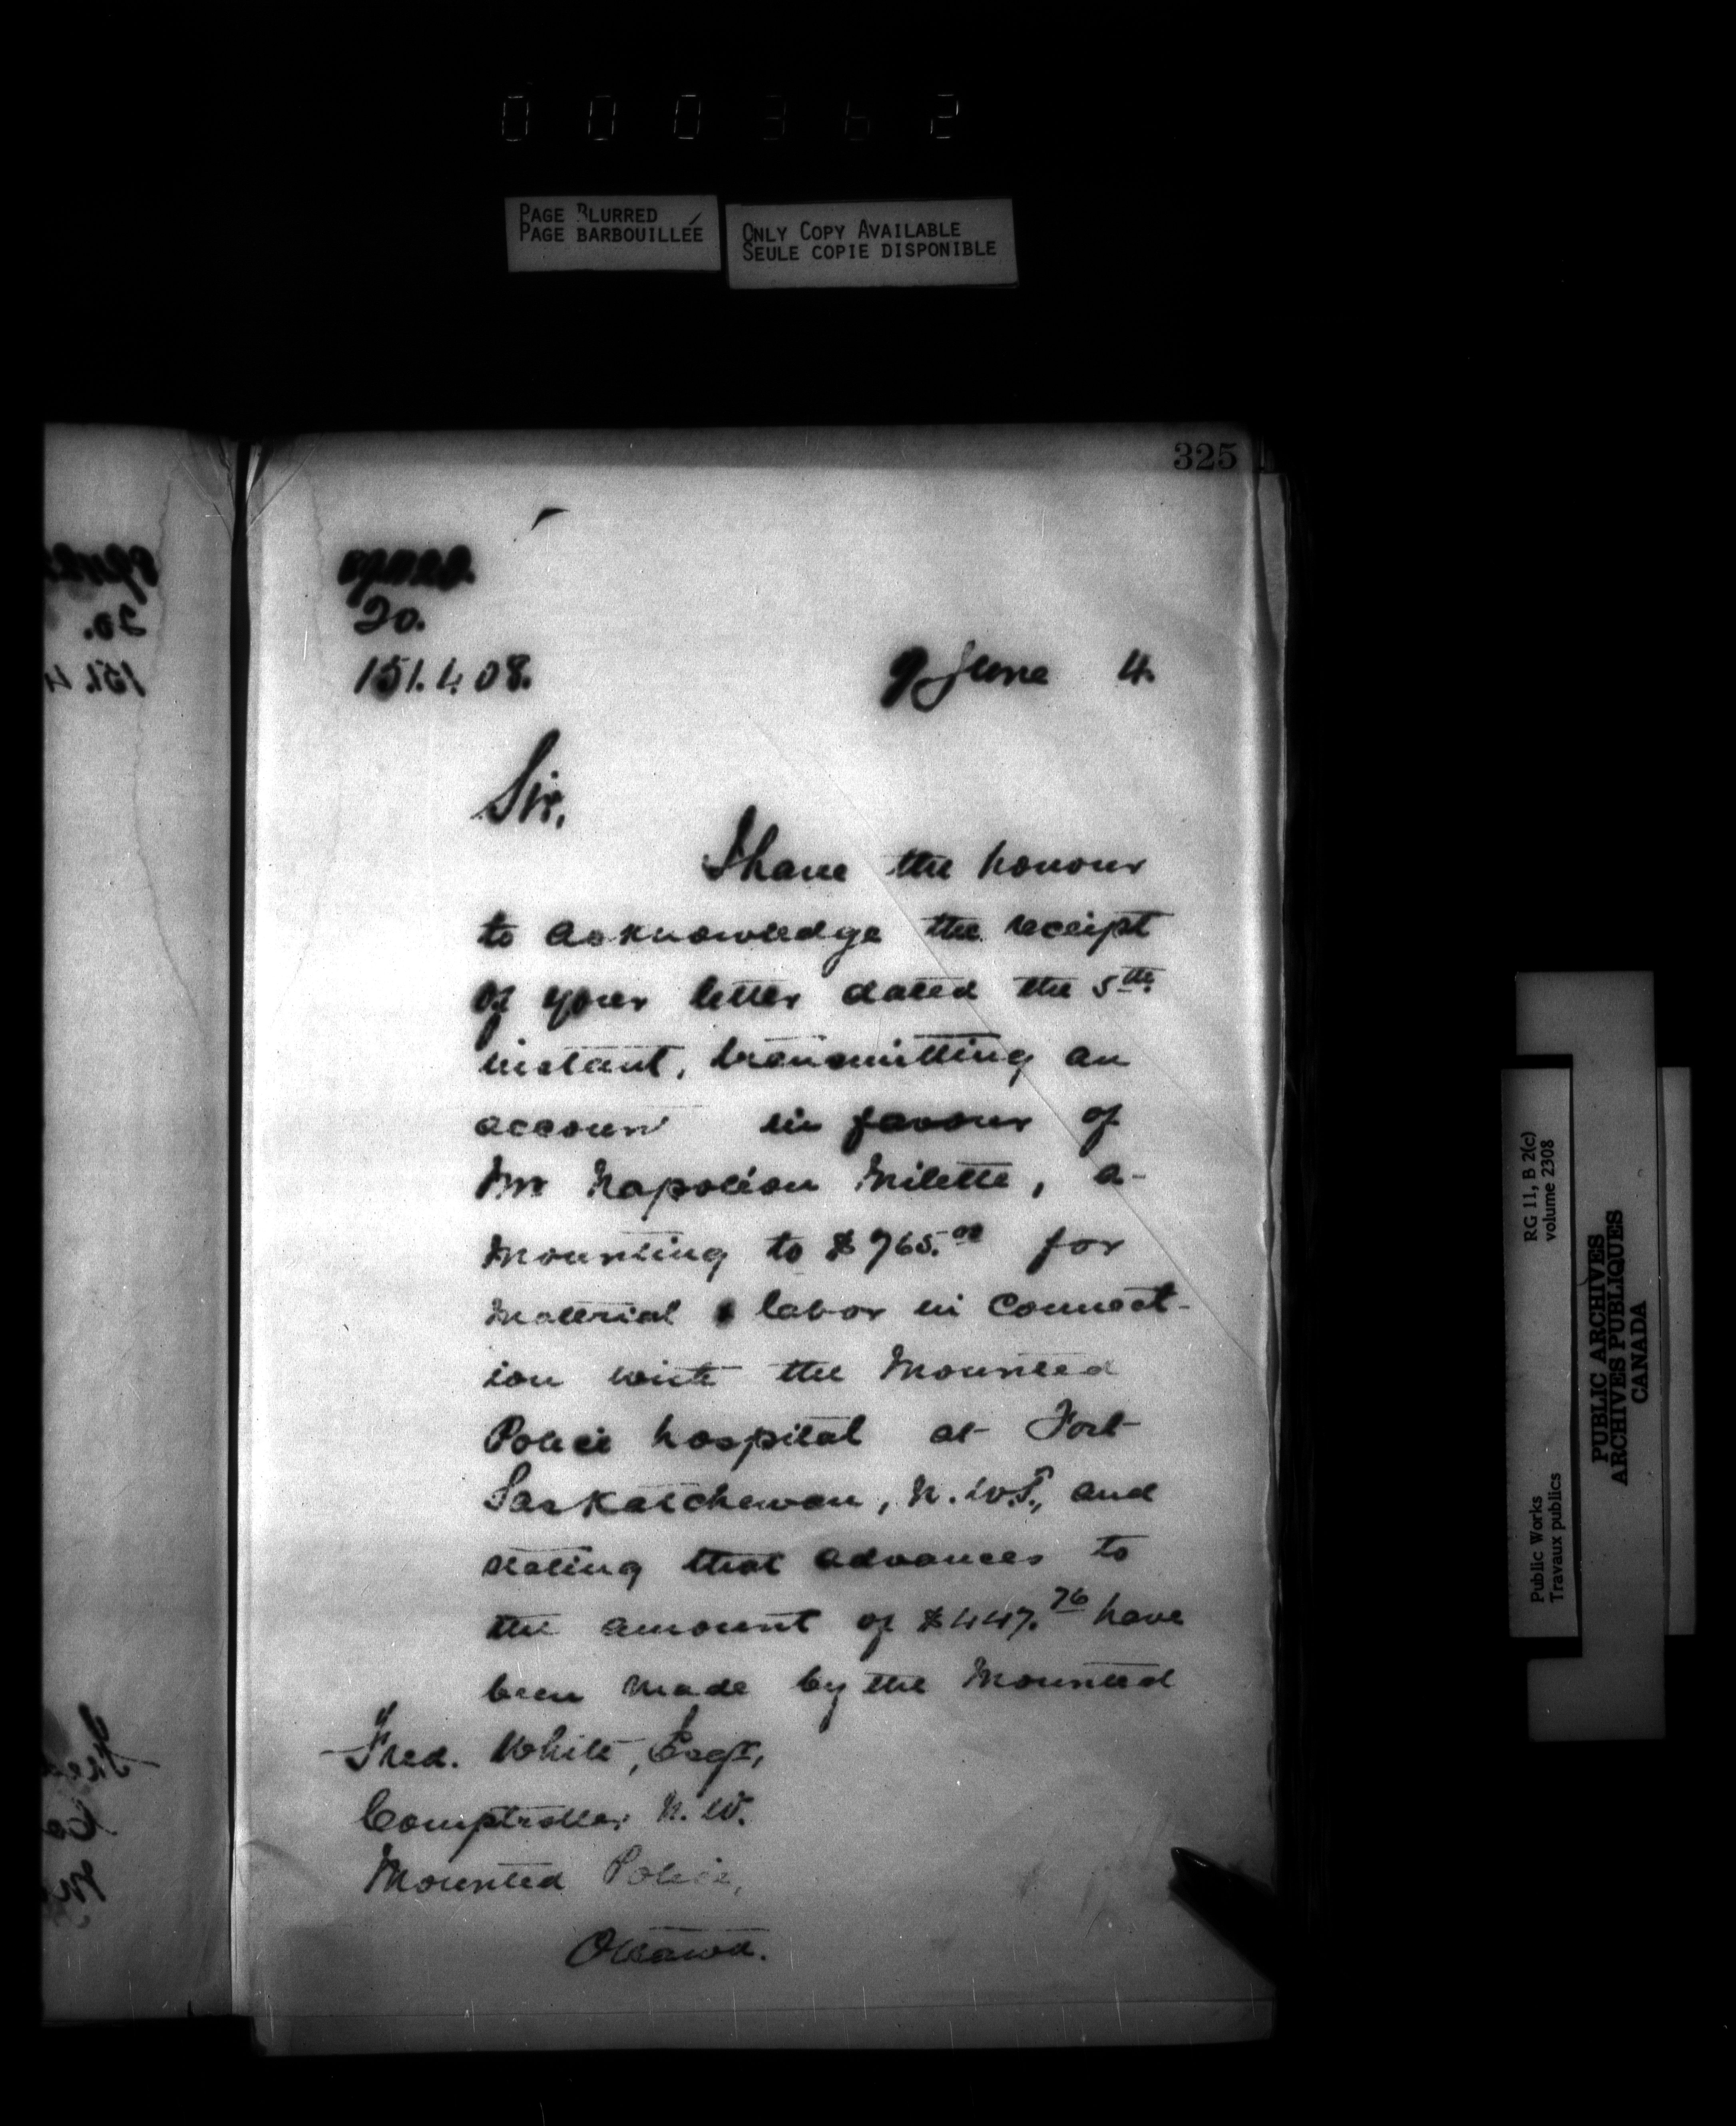 000362
PAGE BLURRED
PAGE BARBOUILLÉE
ONLY COPY AVAILABLE
SEULE COPIE DISPONIBLE
325
20.
151.408.
9 June 4.
Sir,
I have the honour
to acknowledge the receipt
of your letter dated the 5th.
instant, transmitting an
account in favour of
Mr Napoléon Milette, a-
mounting to $765.00 for
Material & labor in Connect-
ion with the Mounted
Police hospital at Fort
Saskatchewan, N.W.T., and
stating that advances to
the amount of $447.76 have
been made by the Mounted
Fred. White, Esqr,
Comptroller N.W.
Mounted Police,
Ottawa.
RG 11, B 2(c)
volume 2308
Public Works
Travaux publics
PUBLIC ARCHIVES
ARCHIVES PUBLIQUES
CANADA